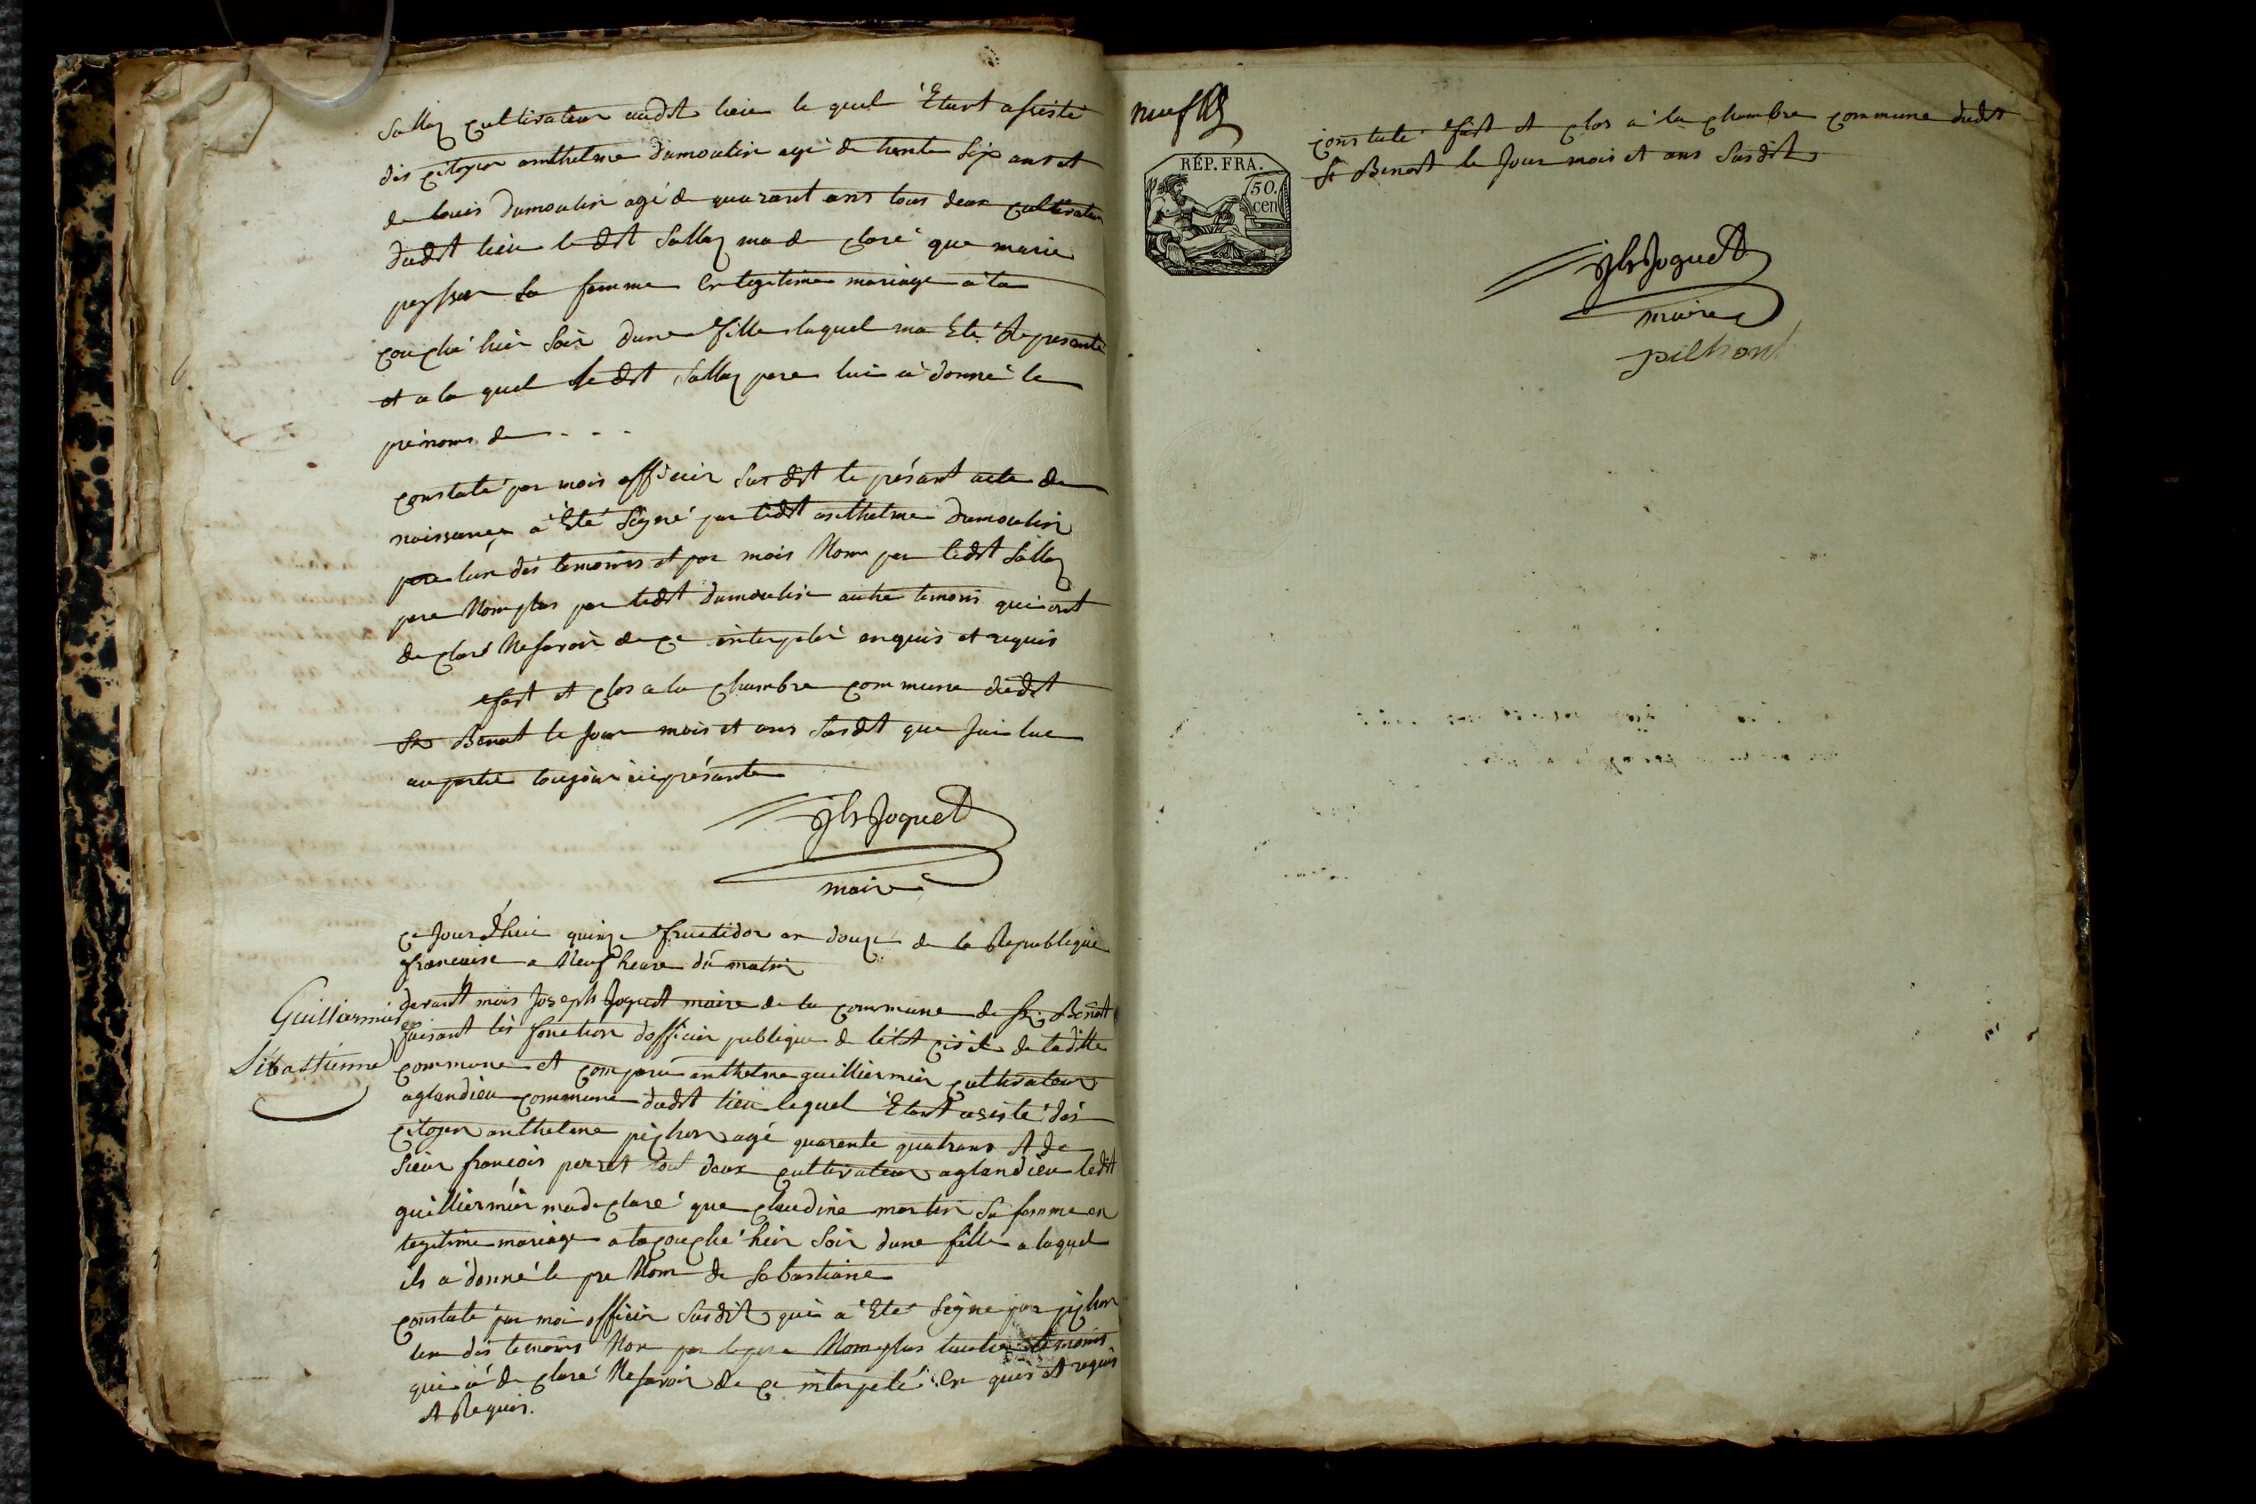 Sallaz cultivateur audit lieu le quel Etant assisté
dés citoyen anthelme dumoulin agé de trente six ans et
de louis dumoulin agé de quarant ans tous deux cultivateur
dudit lieu ledit Sallaz ma de claré que marie
sa femme en legitime mariage a ta
couché hier Soir dune fille laquel ma Eté Represanté
et a la quel ledit Sallaz pere lui a donné le
prénoms de - - -
constaté par mois officier Sus dit le présant acte de
naissance a Eté Signé par ledit anthelme dumoulin
lun dés temoins et par mois Nom par ledit Sallaz
pere Nomplus par ledit dumoulin autre temoins qui ont
de claré Ne savoir de ce interpelé enquis et requis
fait et clos a la chambre commune dudit
St Benoit le Jour mois et ans Susdit que Jai lue
au partie toujour ici présante
Jh Joquet
maire
ce Jourdhui quinze fructidor an douze de la Republique
francaise a Neuf heure du matin
Guilliermin
Sébastienne
devant mois Joseph Joquet maire de la commune de St Benoit
faisant lés fonction dofficier publique de létat civile de laditte
commune et comparu anthelme guilliermin cultivateur
aglandieu commune dudit lieu lequel Etant asisté dés
citoyen anthelme pichon agé quarente quatrans et de
Sieur francois perret tout deux cultivateur aglandieu ledit
guilliermin ma de claré que claudine martin Sa femme en
legitime mariage a ta couché hier Soir dune fille a laquel
ils a donné le pre Nom de Sebastiane
constaté par moi officier Susdit qui a Eté Signe par pichon
lun dés temoins Non par le pere Nomplus lautre temoins
qui a de claré Ne savoir de ce interpelé En quis et requis
et Requis.
neuf
RÉP. FRA.
50.
cen
constaté fait et clos a la chambre commune dudit
St Benoit le Jour mois et ans Susdit
Jh Joquet
maire